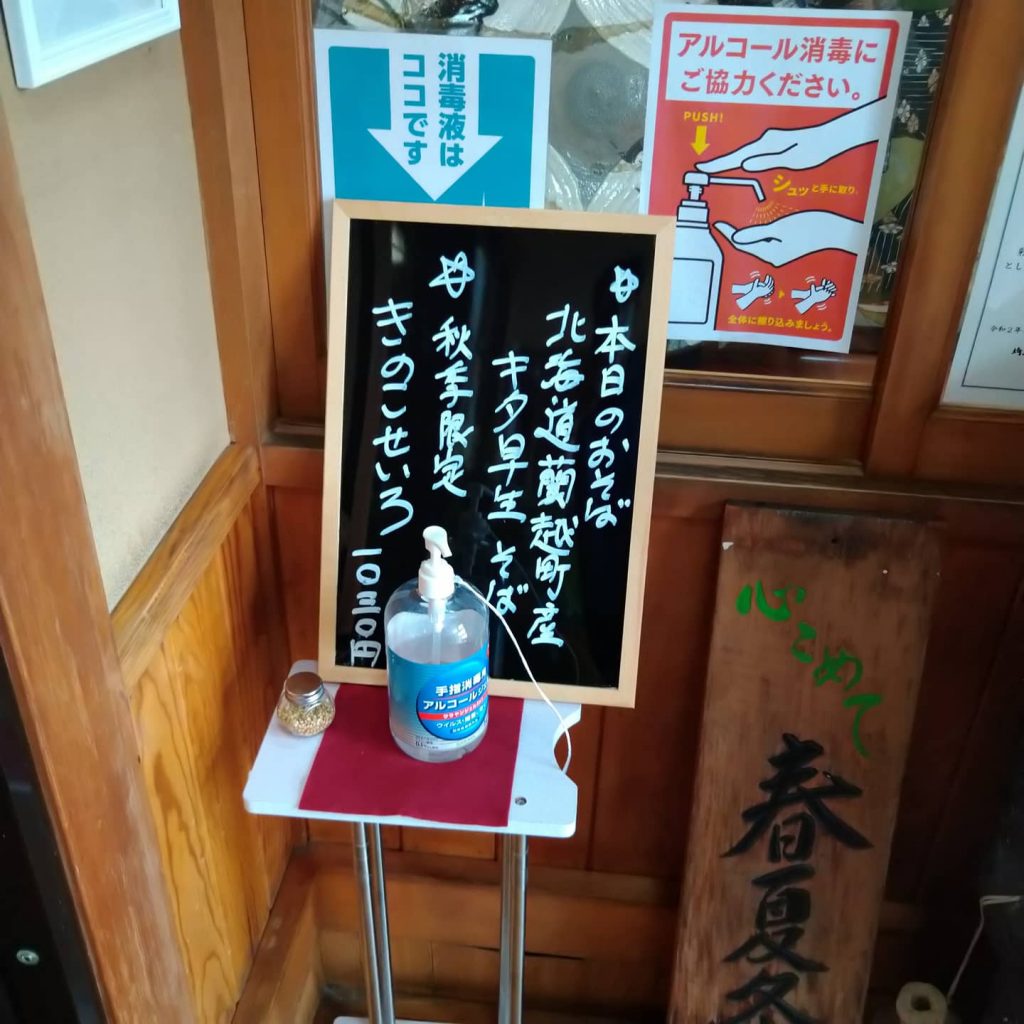 消毒液は
ココです
アルコール消毒に
ご協力ください。
PUSH!
シュッと手に取り、
全体に擦り込みましょう。
本日のおそば
北海道蘭越町産
キタ早生そば
秋季限定
きのこせいろ
一〇三〇円
手指消毒用
アルコールジェル
ウイルス・細菌
心こめて
春夏冬
令和2年